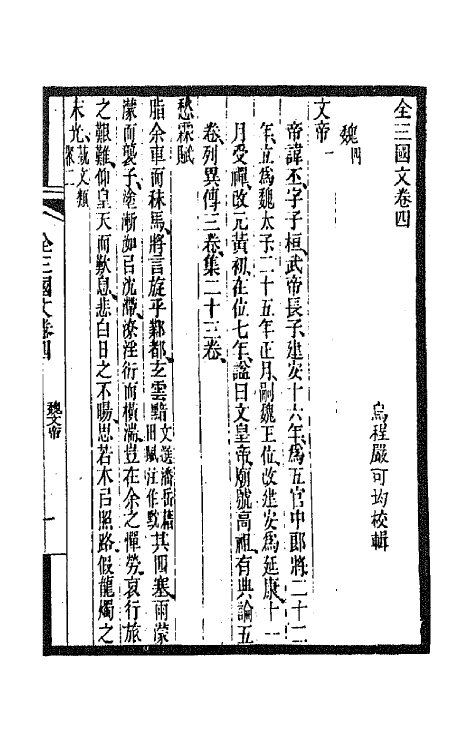 全三國文卷四
烏程嚴可均校輯
魏四
文帝一
帝諱丕字子桓武帝長子建安十六年爲五官中郎將二十二
年立爲魏太子二十五年正月嗣魏王位改建安爲延康十一
月受禪改元黃初在位七年謚曰文皇帝廟號高祖有典論五
卷列異傳三卷集二十三卷
愁霖賦
脂余車而秣馬將言旋乎鄴都玄雲黯文選潘岳藉田賦注作黕其四塞雨濛
濛而襲予塗漸如㠯沈滯潦淫衍而橫湍豈在余之憚勞哀行旅
之艱難仰皇天而歎息悲白日之不暘思若木㠯照路假龍燭之
末光藝文類聚二
全三國文卷四
魏文帝
一